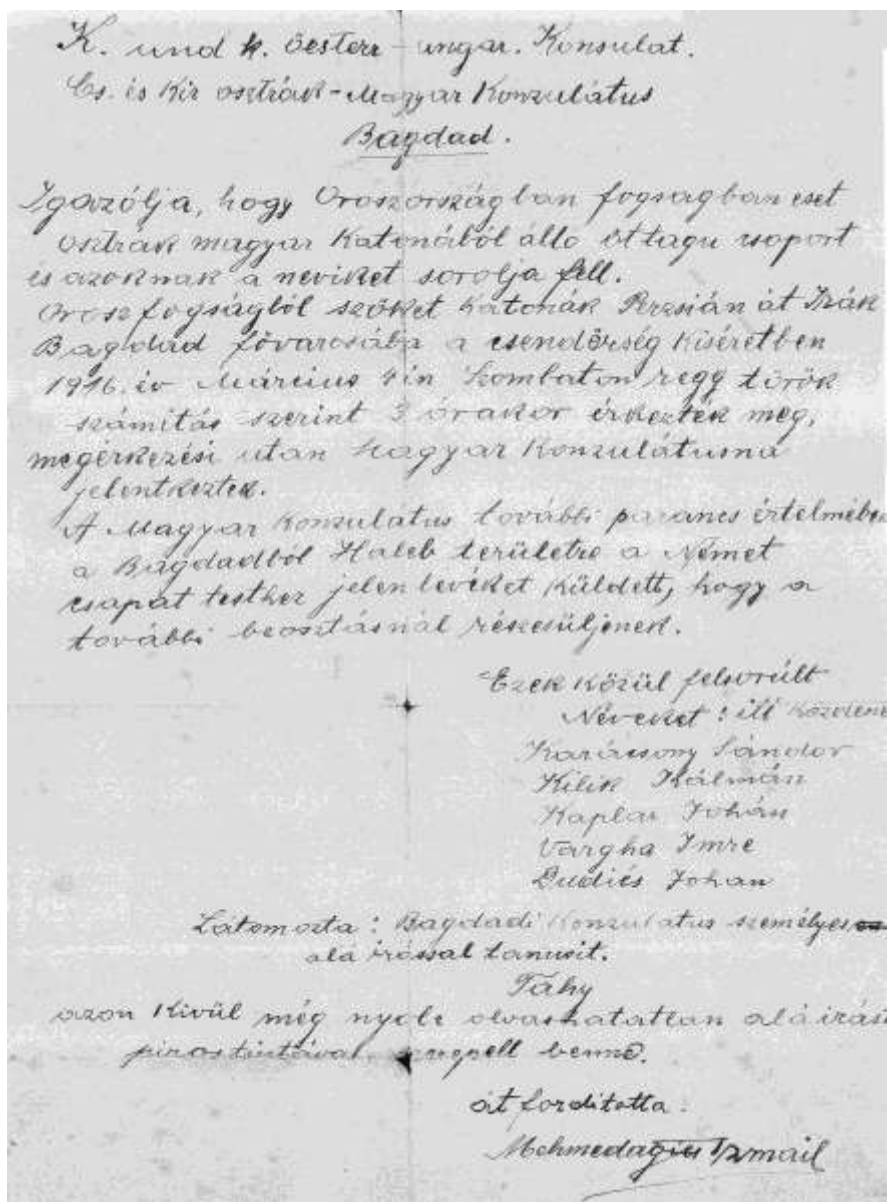 K. und k. öesterr-ungar. Konsulat.
Cs. és Kir osztrák-Magyar Konzulátus
Bagdad.
Igazólja, hogy Oroszországban fogságban eset
osztrák magyar katonából álló öttagu csoport
és azoknak a neviket sorolja fell.
Orosz fogságból szöket katonák Perzsián át Irák
Bagdad fövarosába a csendörség kiséretben
1916. év Március 4 in Szombaton regg török
számitás szerint 3 órakor érkezték meg,
megérkezési utan Magyar Konzulátusna
jelentkeztek.
A Magyar konzulatus további parancs értelmében
a Bagdadból Haleb területre a Német
csapat testhez jelenlevéket küldett, hogy a
további beosztásnál részesüljenek.
Ezek közül felsorúlt
Néveket: itt
Karácsony Sándor
Kilik Kálmán
Kaplar Johán
Vargha Imre
Dudiés Johan
Látomozta: Bagdadi Konzulatus személyes
alá irással tanusit.
Tahy
azon kivül még nyolc olvashatatlan aláirás
piros tintával szerepell benne.
át forditotta:
Mehmedagics Izmail